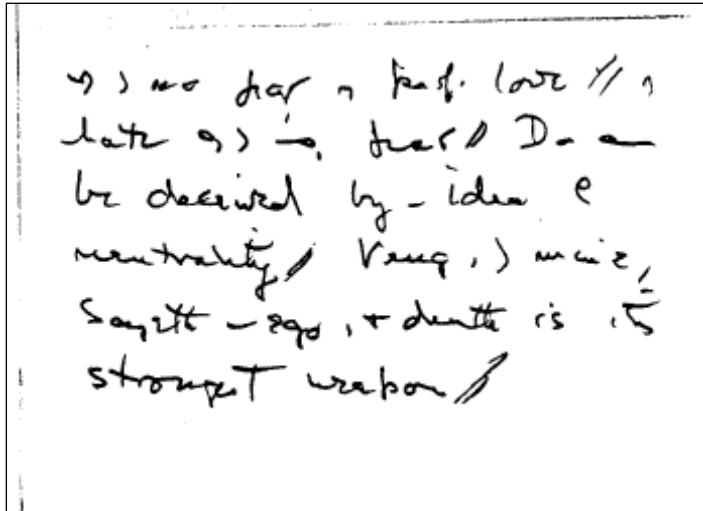 no fear perf. love //
hate fear // Do
be deceived by - idea
neutrality // Veng. mine,
Sayeth - ego, + death is its
strongest weapon //